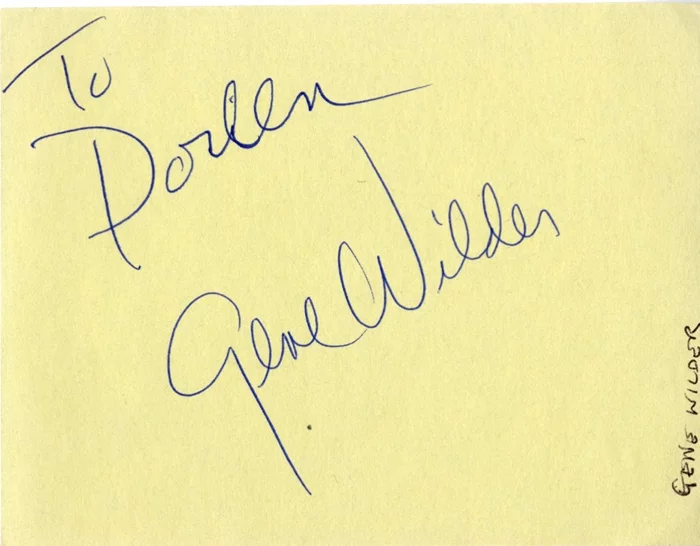 To
Gene Wilder
GENE WILDER